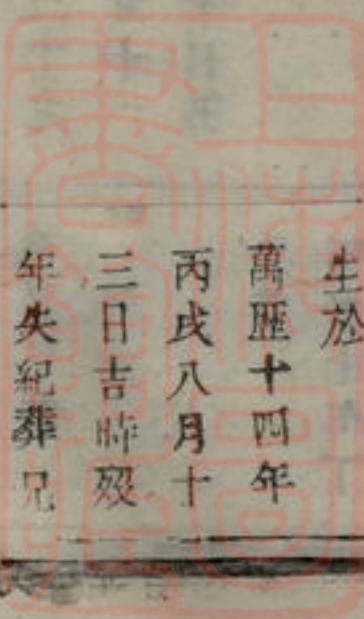 生於
萬歴十四年
丙戌八月十
三日吉時殁
年失紀葬兄